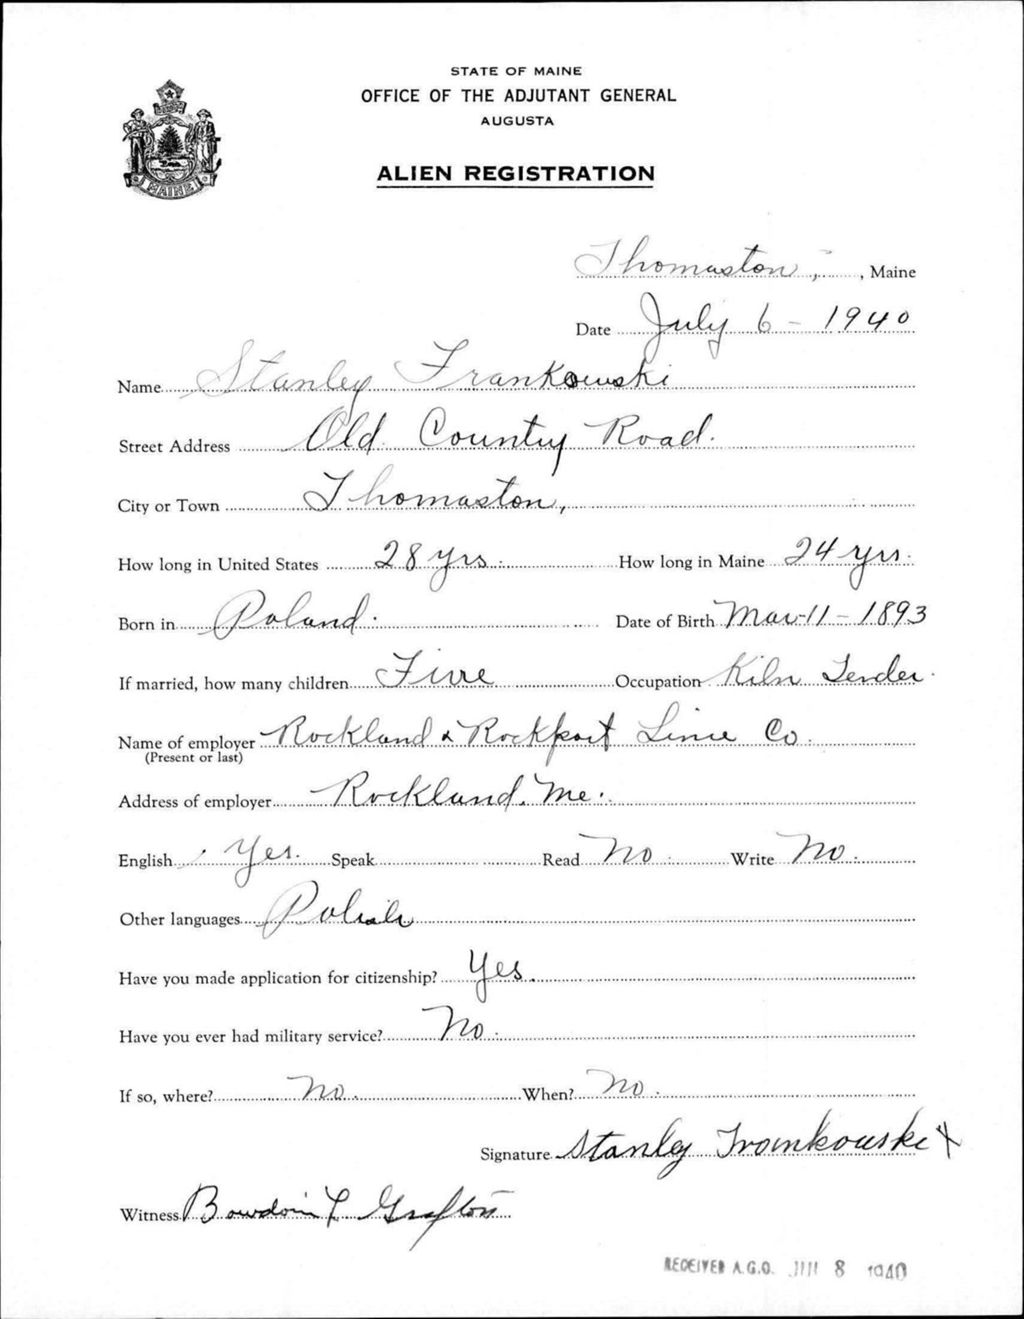 STATE OF MAINE
OFFICE OF THE ADJUTANT GENERAL
AUGUSTA
ALIEN REGISTRATION
MAINE
Thomaston, , Maine
Date July 6 - 1940
Name Stanley Frankowski
Street Address Old County Road.
City or Town Thomaston,
How long in United States 28 yrs. How long in Maine 24 yrs.
Born in Poland. Date of Birth Mar-11-1893
If married, how many children Five Occupation Kiln Tender.
Name of employer Rockland & Rockport Lime Co.
(Present or last)
Address of employer Rockland, Me.
English Yes. Speak Read No. Write No.
Other languages Polish
Have you made application for citizenship? Yes.
Have you ever had military service? No.
If so, where? No. When? No.
Signature Stanley Frankowski X
Witness Bowdoin L Grafton
RECEIVED A.G.O. JUL 8 1940